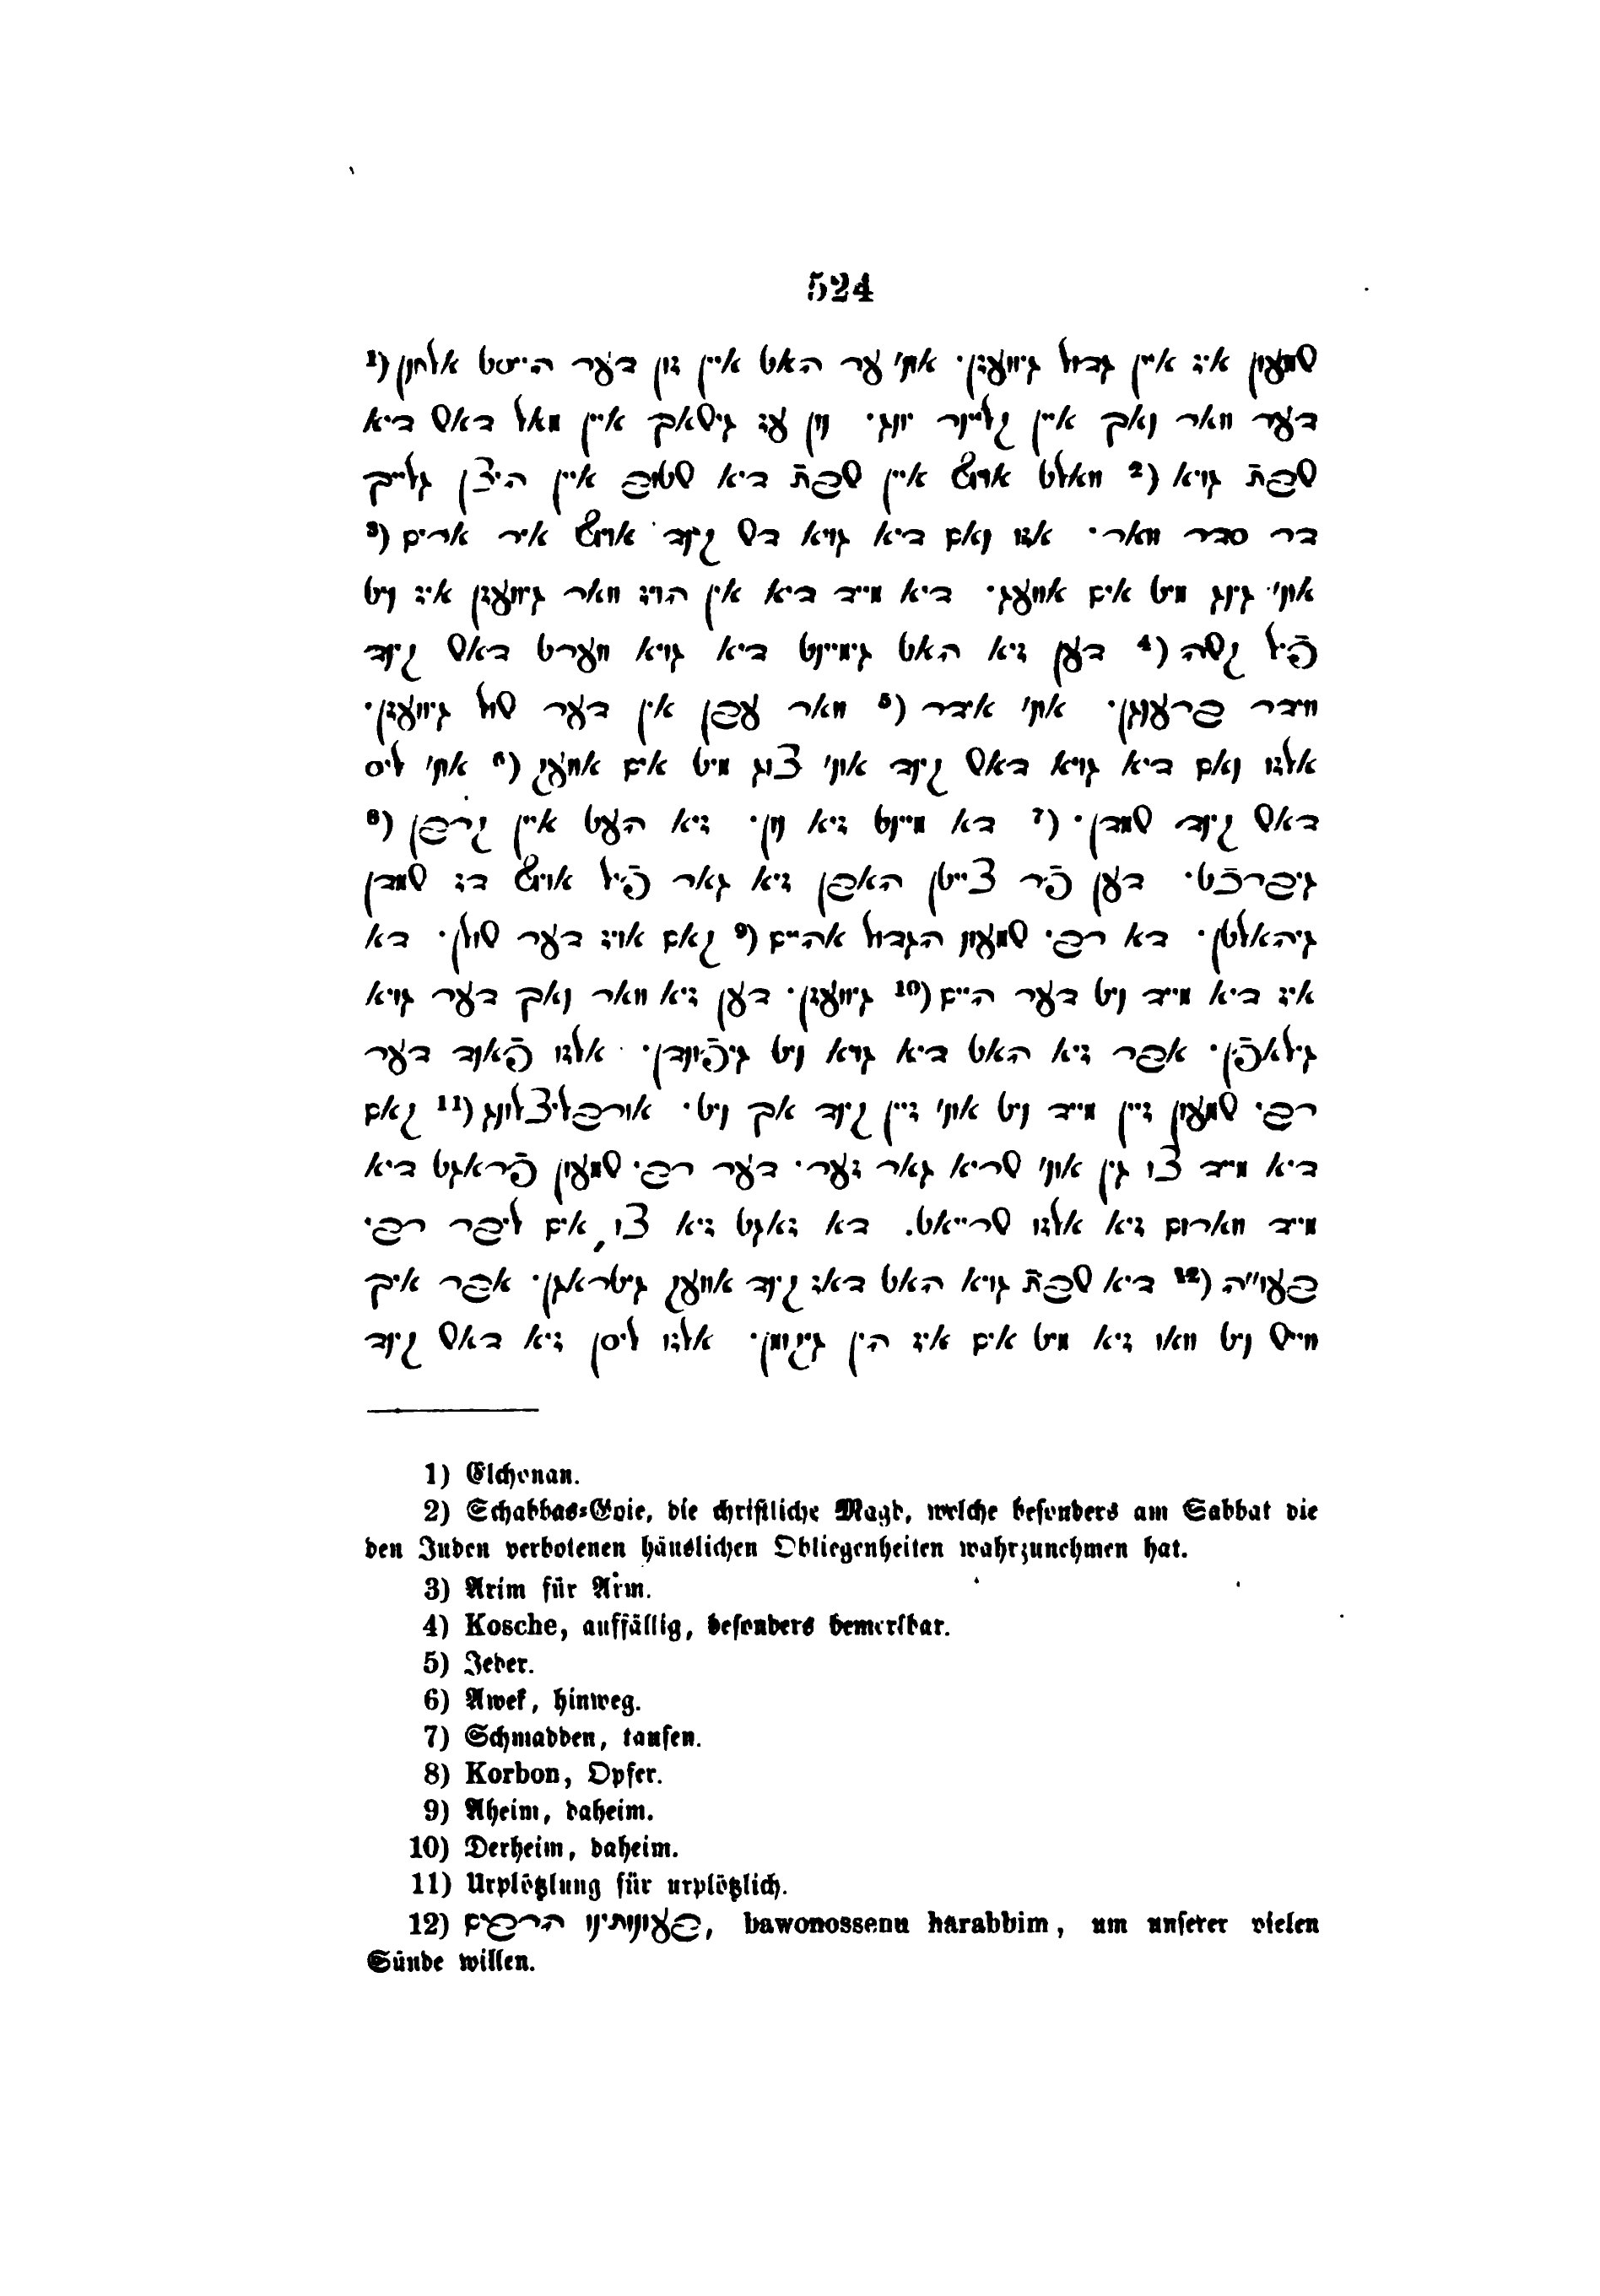 524
שמעון איז איין גדול געוועזן· אונ׳ ער האט איין זון דער הייסט אלחנן (1
דער וואר נאך איין קליינר יונג· נון עז גישאך איין מאל דאש דיא
שבת גויא (2 וואלט אויף איין שבת דיא שטוב איין הייצן גלייך
דר סדר וואר· אזו נאם דיא גויא דש קינד אויף איר ארים (3
אונ׳ גינג מיט אים אוועג· דיא מייד דיא אין הויז וואר גיוועזן איז ניט
פֿיל קשה (4 דען זיא האט גימיינט דיא גויא ווערט דאש קינד
ווידר ברענגן· אונ׳ אידר (5 וואר עבן אין דער שול גיוועזן·
אלזו נאם דיא גויא דאש קינד אונ׳ צוג מיט אים אוועק (6 אונ׳ ליס
דאש קינד שמדן· (7 דא מיינט זיא נון· זיא העט איין קרבן (8
גיברכֿט· דען פֿר צייטן האבן זיא גאר פֿיל אויף דז שמדן
גיהאלטן· דא רבי שמעון הגדול אהיים (9 קאם אויז דער שולן· דא
איז דיא מייד ניט דער היים (10 גיוועזן· דען זיא וואר נאך דער גויא
גילאפֿן· אבר זיא האט דיא גויא ניט גיפֿונדן· אלזו פֿאנד דער
רבי שמעון זיין מייד ניט אונ׳ זיין קינד אך ניט· אורבליצלונג (11 קאם
דיא מייד צו גין אונ׳ שריא גאר זער· דער רבי שמעון פֿראגט דיא
מייד ווארום זיא אלזו שרייאט. דא זאגט זיא צו אים ליבר רבי
בעו״ה (12 דיא שבת גויא האט דאז קינד אוועק גיטראגן· אבר איך
ווייש ניט וואו זיא מיט אים איז הין גיקומן· אלזו ליסן זיא דאש קינד
1) Elchonan.
2) Schabbas=Goie, die christliche Magd, welche besonders am Sabbat die
den Juden verbotenen häuslichen Obliegenheiten wahrzunehmen hat.
3) Arim für Arm.
4) Kosche, auffällig, besonders bemerkbar.
5) Jeder.
6) Awek, hinweg.
7) Schmadden, taufen.
8) Korbon, Opfer.
9) Aheim, daheim.
10) Derheim, daheim.
11) Urplötzlung für urplötzlich.
12) בעונותינו הרבים, bawonossenu harabbim, um unserer vielen
Sünde willen.